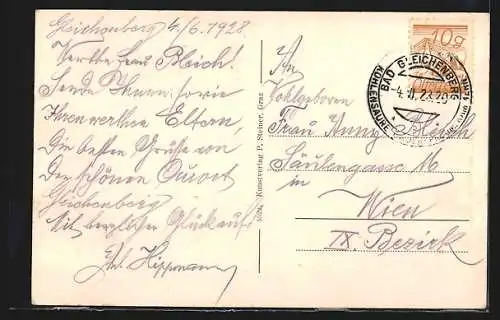 Gleichenberg 4/6. 1928.
Werthe Frau Bleich!
Sende Ihnen sowie
Ihren werthen Eltern,
die besten Grüße von
den schönen Curort
Gleichenberg
Mit herzlicher Glückauf
Hippmann
Kunstverlag P. Steiner, Graz
10g
BAD GLEICHENBERG
KOHLENSÄURE
An
Wohlgeboren
Frau Anny Bleich
Säulengasse 16
in
Wien
IX. Bezirk